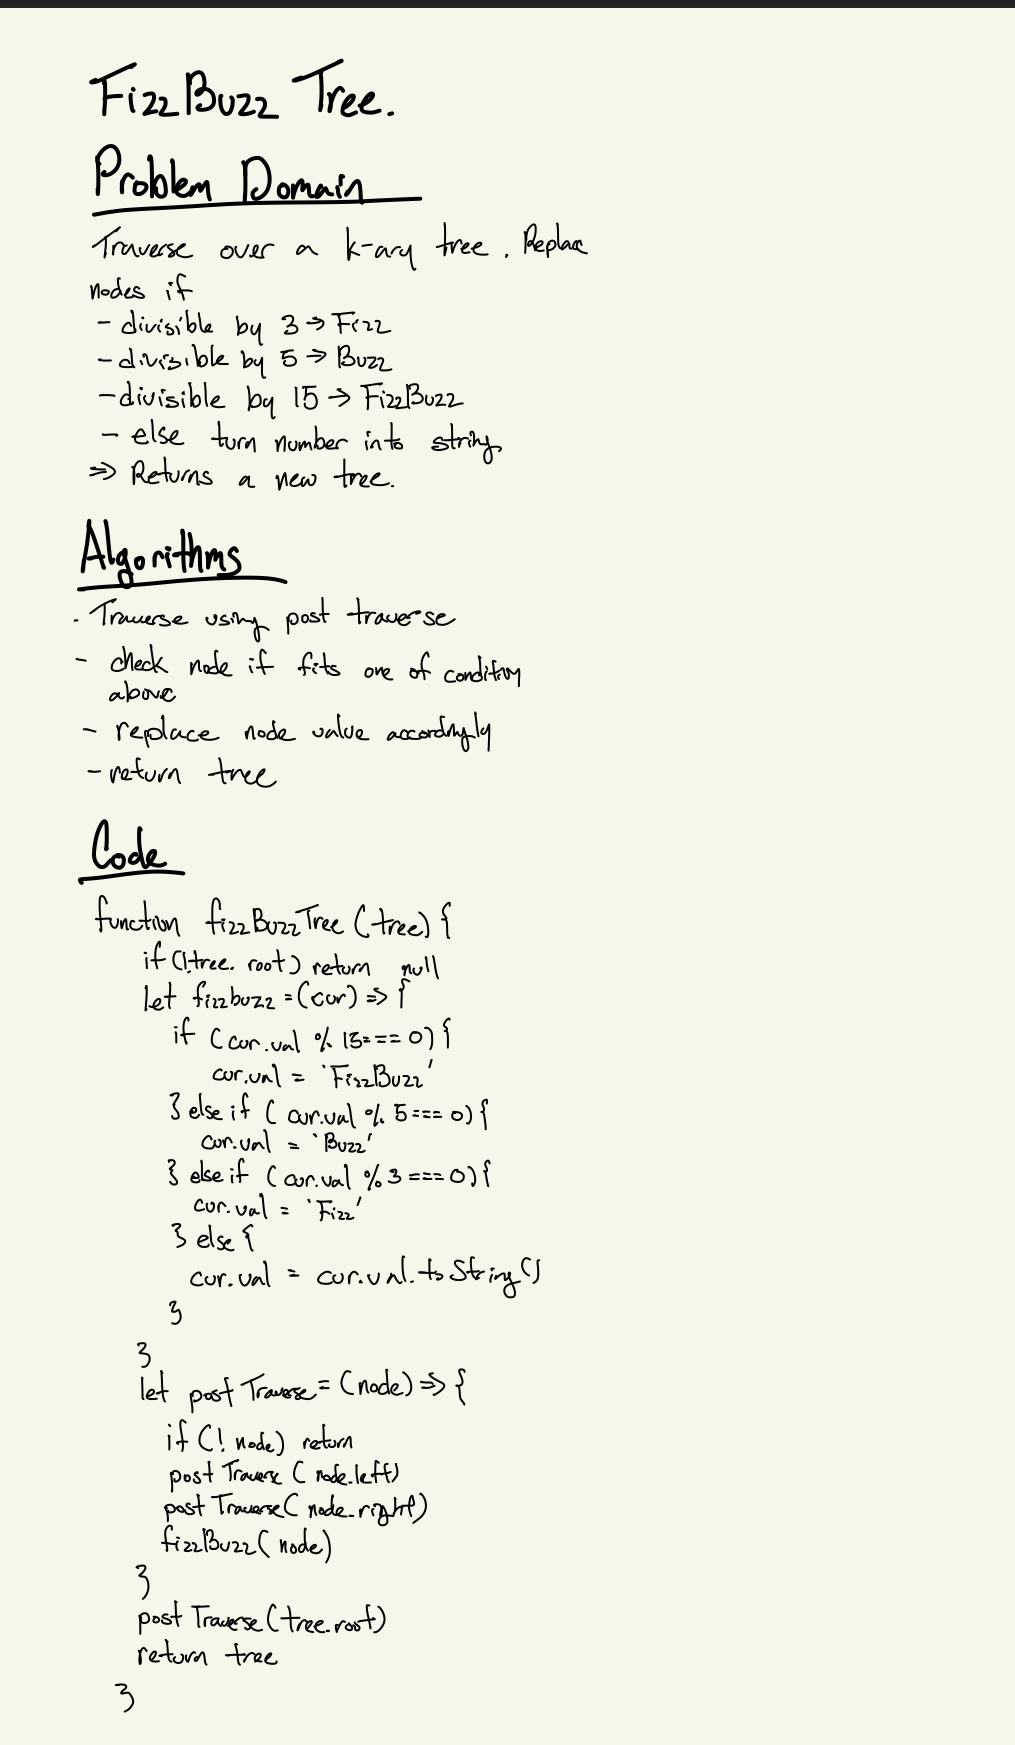 FizzBuzz Tree.
Problem Domain
Traverse over a k-ary tree. Replace
nodes if
- divisible by 3 → Fizz
- divisible by 5 → Buzz
- divisible by 15 → FizzBuzz
- else turn number into string
⇒ Returns a new tree.
Algorithms
. Traverse using post traverse
- check node if fits one of condition
above
- replace node value accordingly
- return tree
Code
function fizzBuzzTree (tree) {
if (!tree.root) return null
let fizzbuzz = (cur) => {
if (cur.val % 15 === 0) {
cur.val = 'FizzBuzz'
} else if (cur.val % 5 === 0) {
cur.val = 'Buzz'
} else if (cur.val % 3 === 0) {
cur.val = 'Fizz'
} else {
cur.val = cur.val.toString()
}
}
let postTraverse = (node) => {
if (! node) return
postTraverse (node.left)
postTraverse (node.right)
fizzBuzz (node)
}
postTraverse (tree.root)
return tree
}